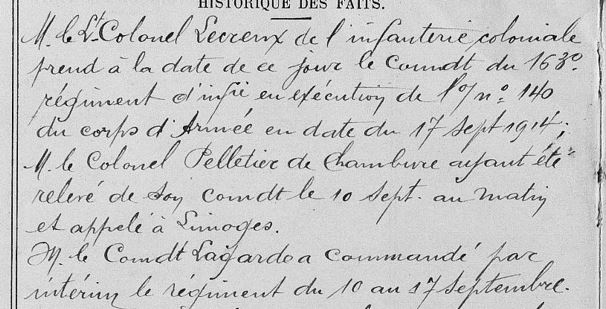 HISTORIQUE DES FAITS.
M. le Lt Colonel Lecreux de l'infanterie coloniale
prend à la date de ce jour le Comdt du 163e
régiment d'infie en exécution de l'o/ no 140
du corps d'Armée en date du 17 Sept 1914;
M. le Colonel Pelletier de Chambure ayant été
relevé de son comdt le 10 Sept. au matin
et appelé à Limoges.
M. le Comdt Lagardo a commandé par
intérim le régiment du 10 au 17 Septembre.